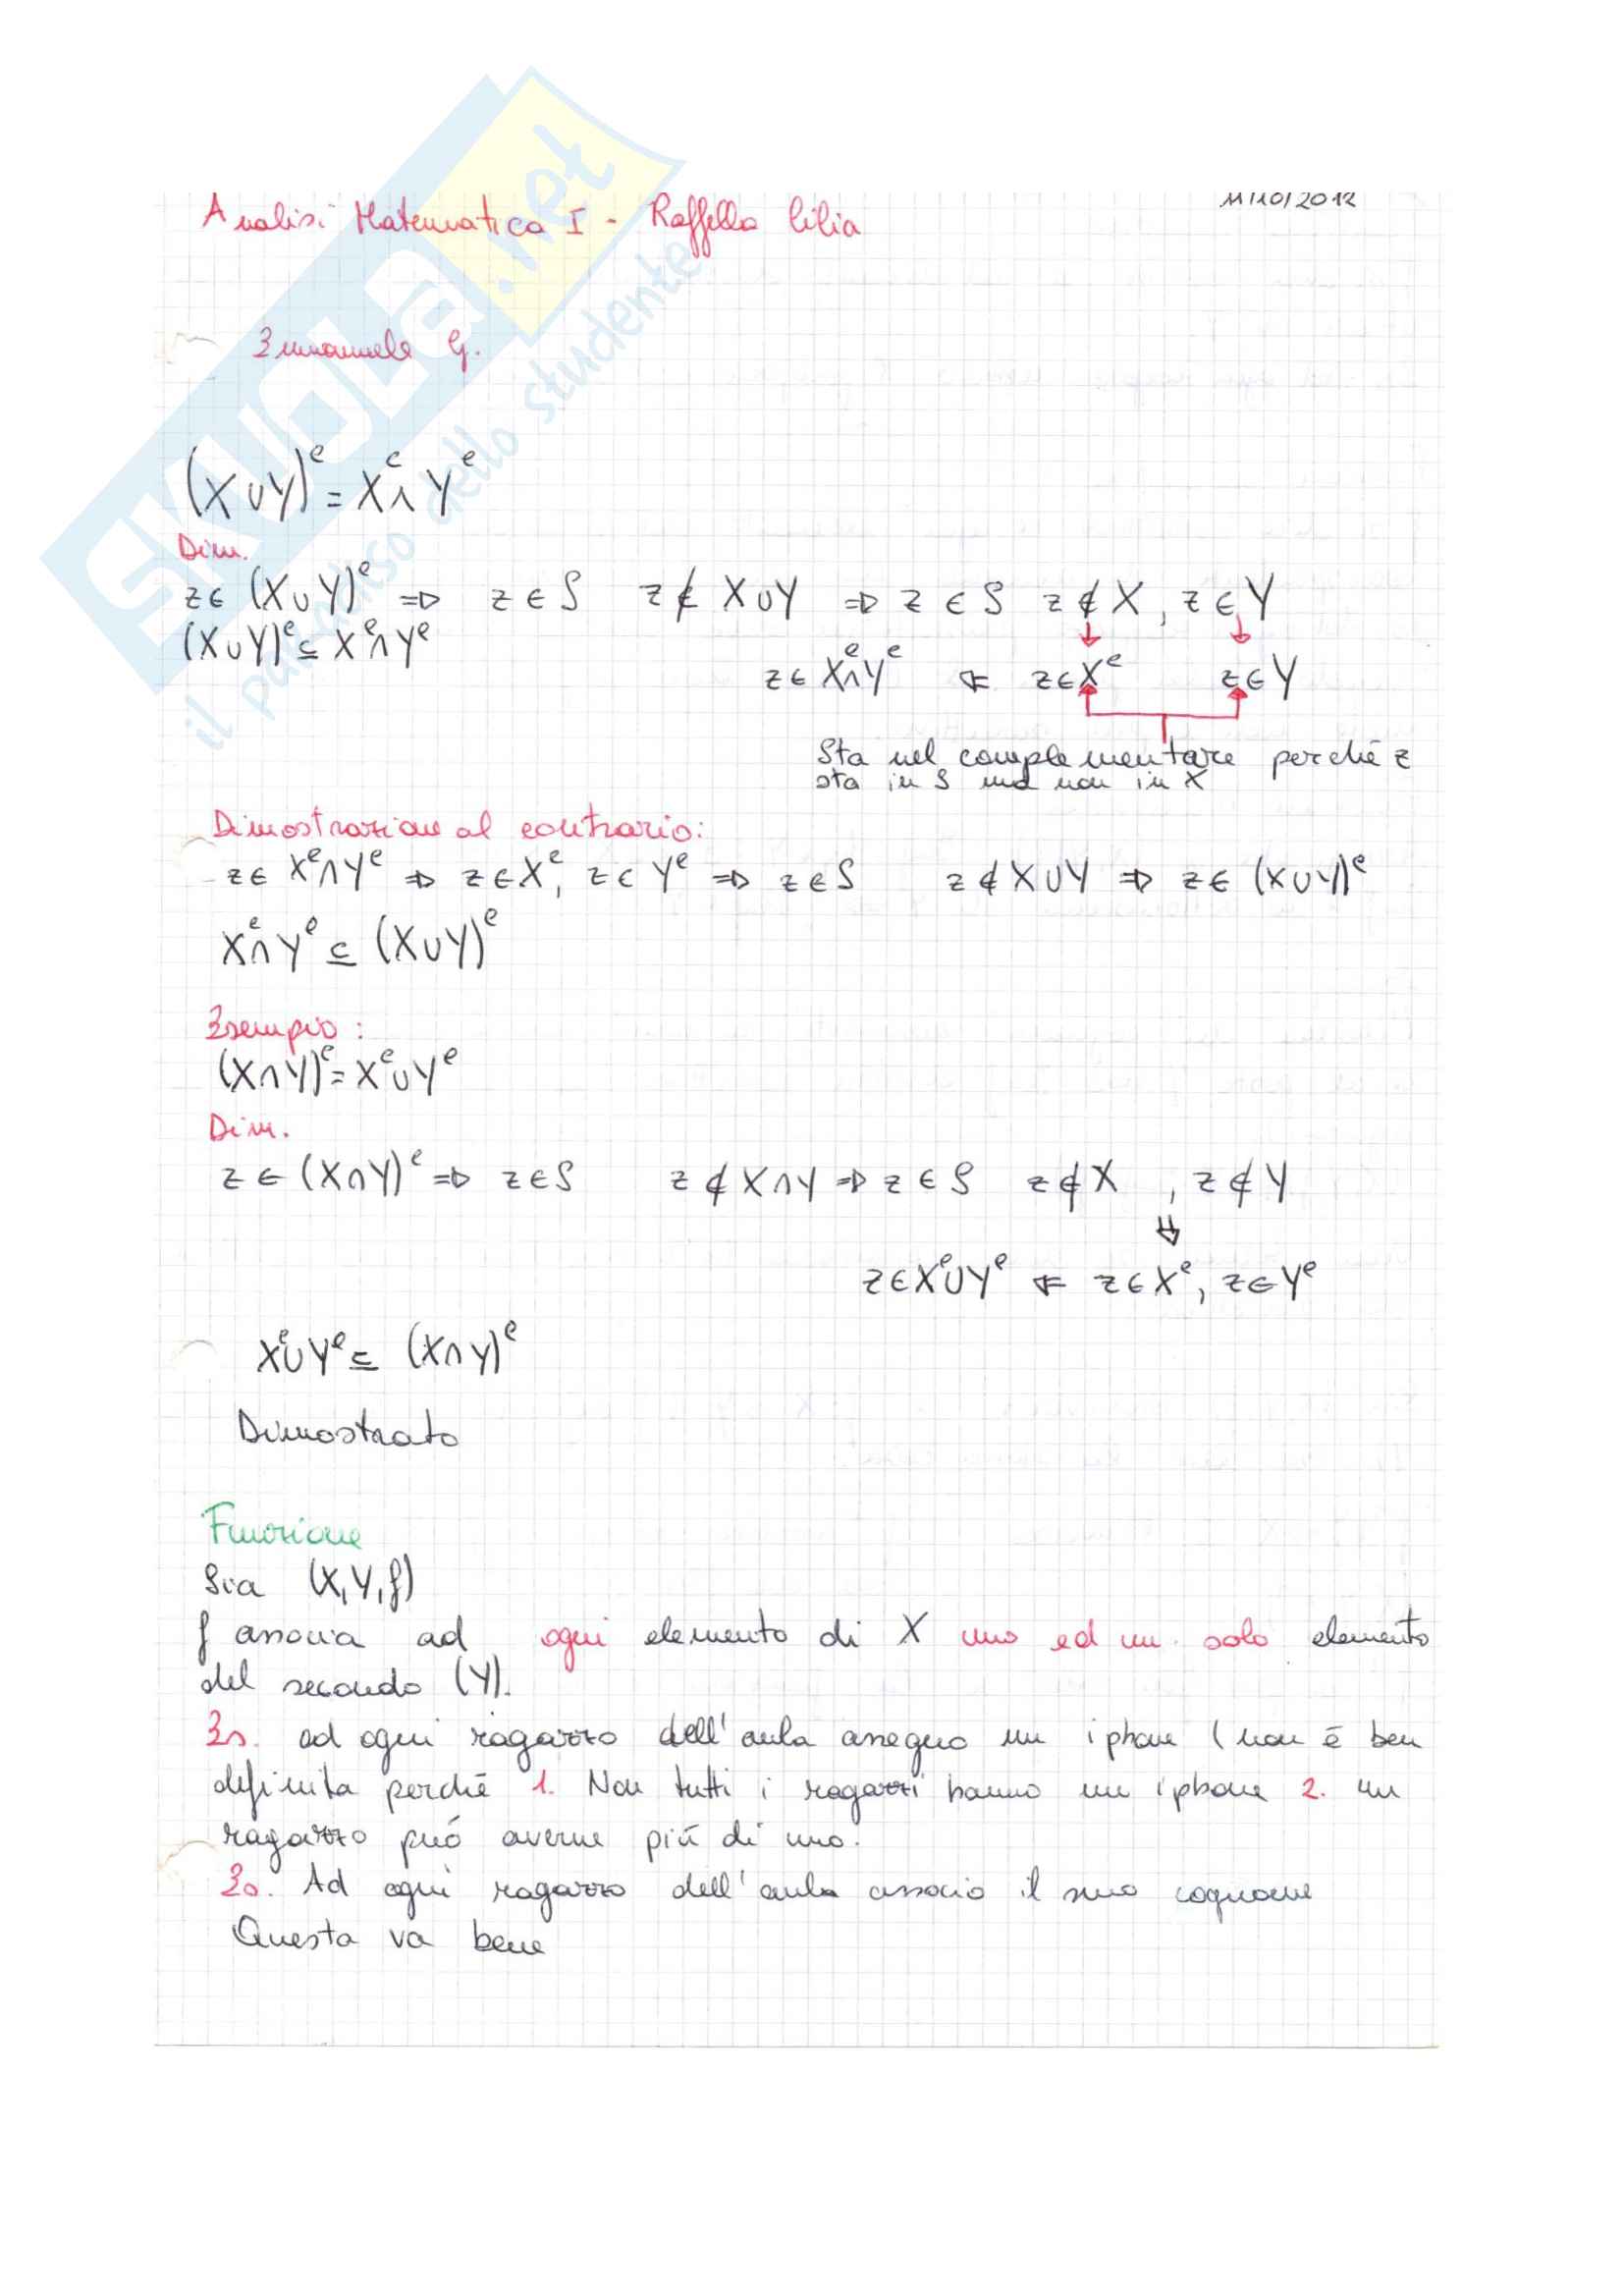 SKUOLA.net
il paradiso dello studente
11/10/2012
Analisi Matematica I - Raffella Cilia
Emmanuele G.
(X∪Y)ᶜ = Xᶜ∩Yᶜ
Dim.
z∈(X∪Y)ᶜ ⇒ z∈S z∉X∪Y ⇒ z∈S z∉X, z∈Y
(X∪Y)ᶜ⊆Xᶜ∩Yᶜ
z∈Xᶜ∩Yᶜ ⇐ z∈Xᶜ z∈Y
Sta nel complementare perché z
sta in S ma non in X
Dimostrazione al contrario:
z∈Xᶜ∩Yᶜ ⇒ z∈Xᶜ, z∈Yᶜ ⇒ z∈S z∉X∪Y ⇒ z∈(X∪Y)ᶜ
Xᶜ∩Yᶜ⊆(X∪Y)ᶜ
Esempio:
(X∩Y)ᶜ=Xᶜ∪Yᶜ
Dim.
z∈(X∩Y)ᶜ ⇒ z∈S z∉X∩Y ⇒ z∈S z∉X , z∉Y
⇓
z∈Xᶜ∪Yᶜ ⇐ z∈Xᶜ, z∈Yᶜ
Xᶜ∪Yᶜ⊆(X∩Y)ᶜ
Dimostrato
Funzione
Sia (X,Y,f)
f associa ad ogni elemento di X uno ed un solo elemento
del secondo (Y).
Es. ad ogni ragazzo dell'aula assegno un iphone (non è ben
definita perché 1. Non tutti i ragazzi hanno un iphone 2. un
ragazzo può averne più di uno.
Es. Ad ogni ragazzo dell'aula associo il suo cognome
Questa va bene